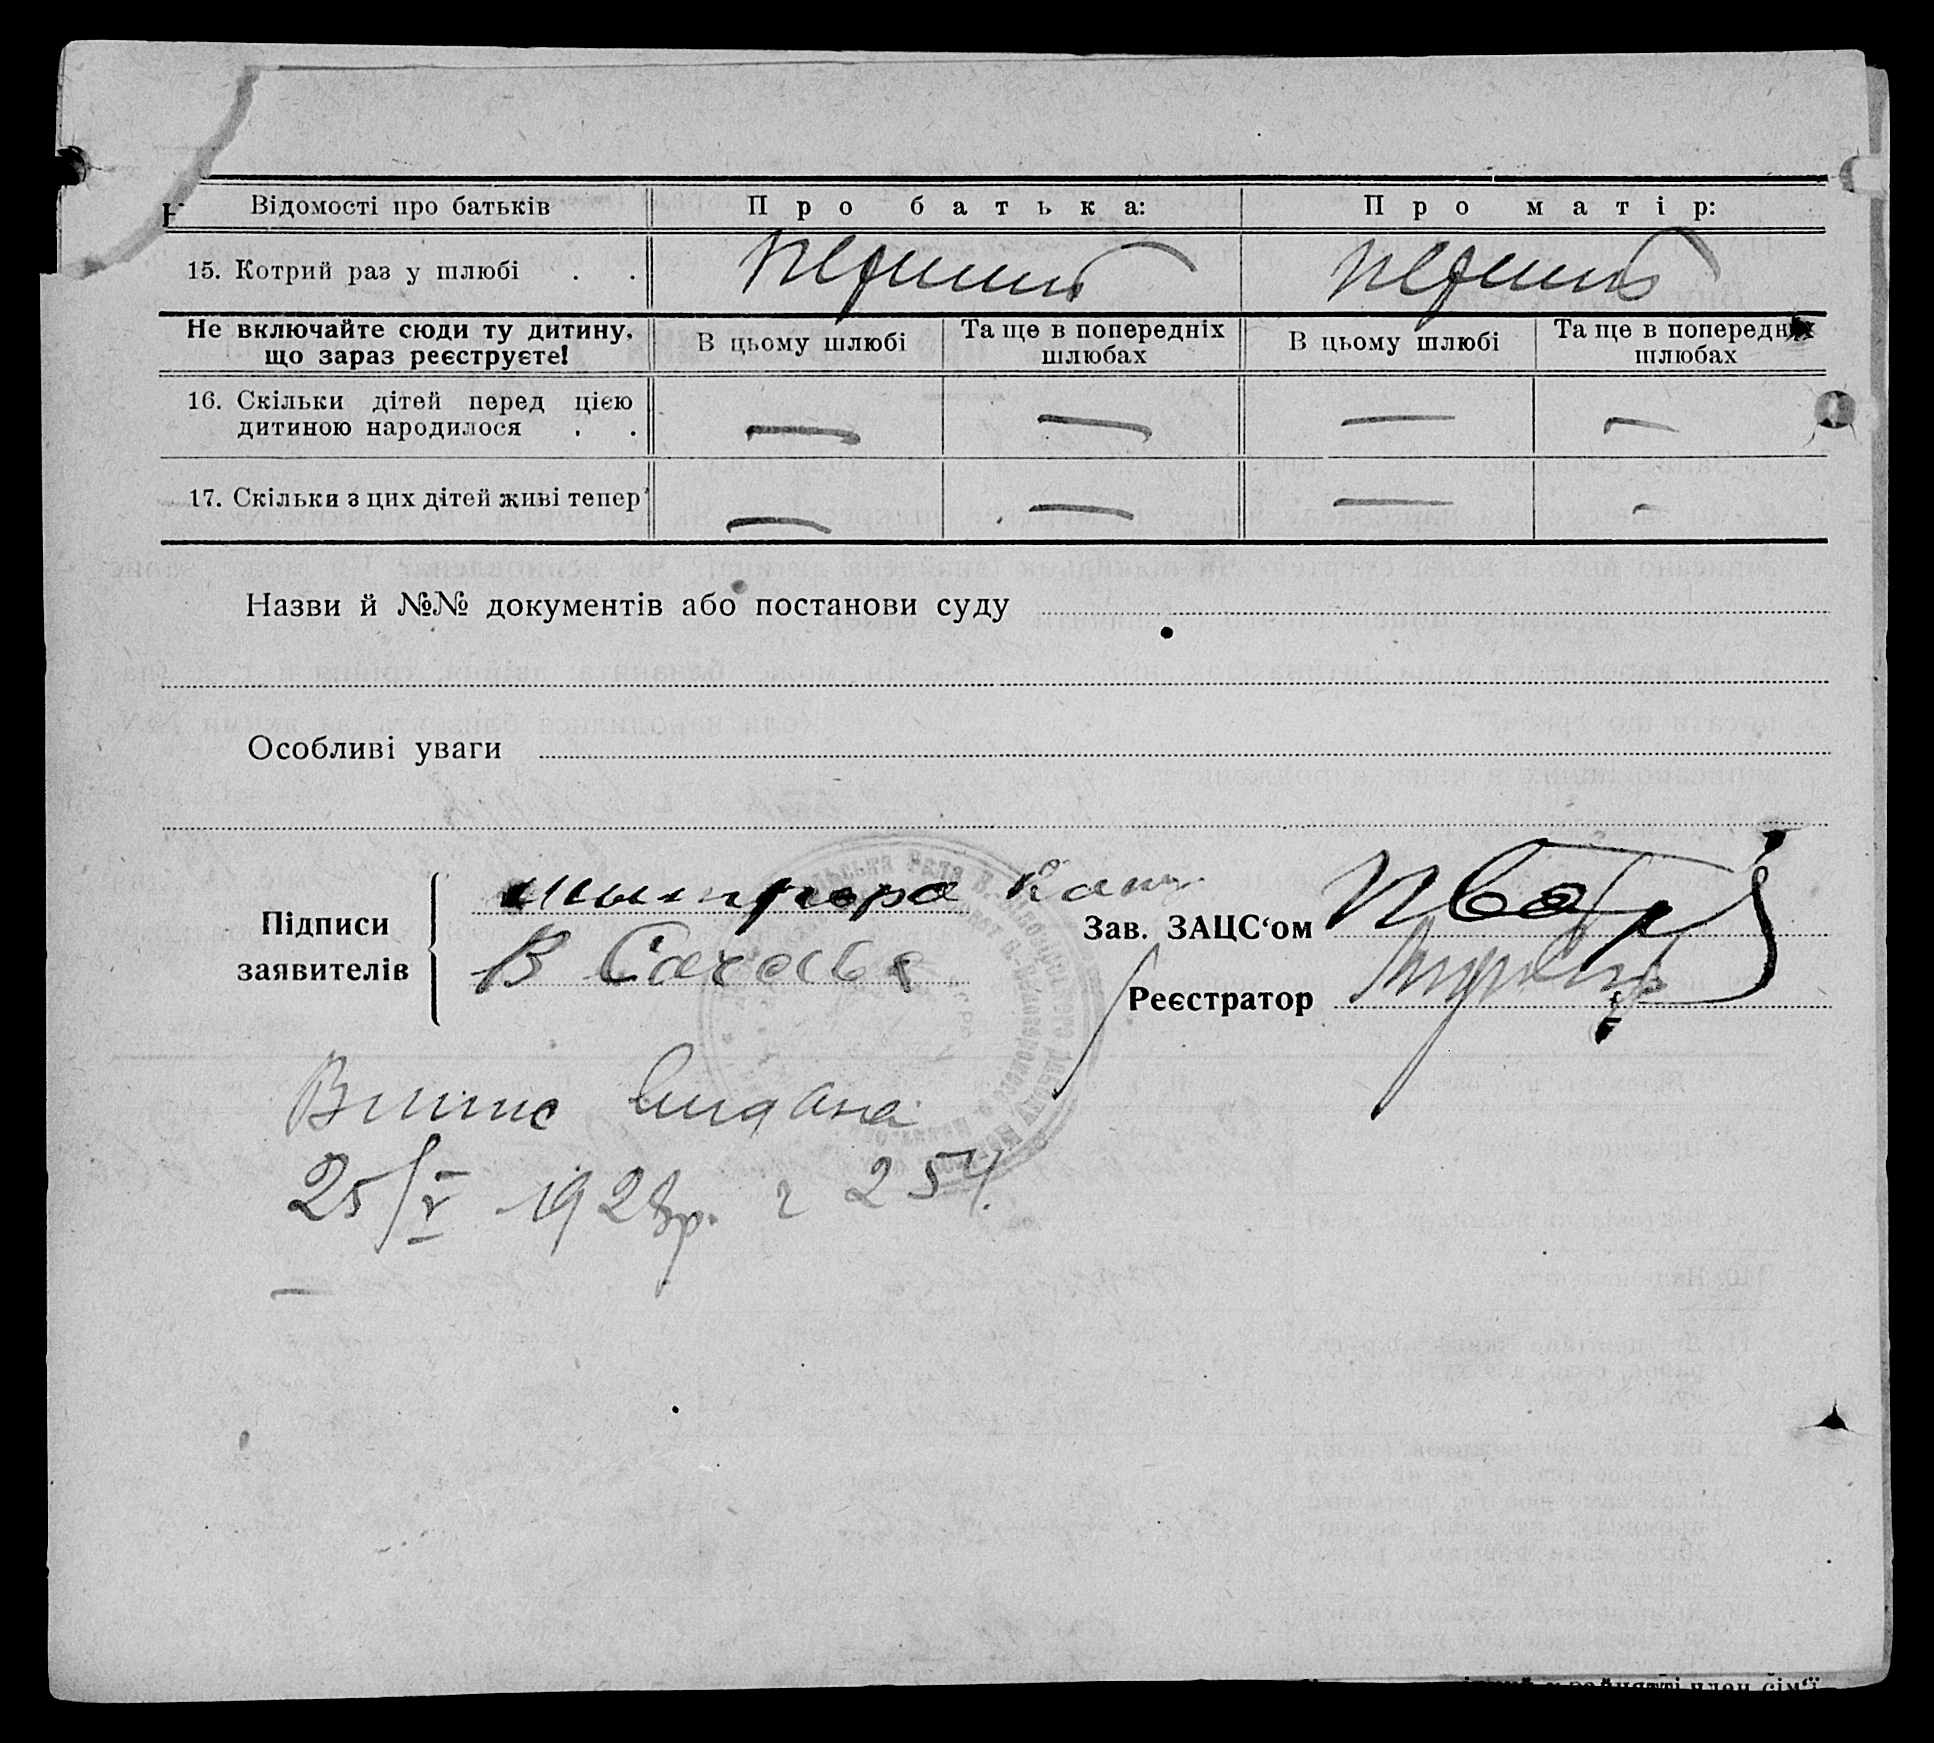 Відомості про батьків Про батька: Про матір:
15. Котрий раз у шлюбі . . перший перший
Не включайте сюди ту дитину, що зараз реєструєте! В цьому шлюбі Та ще в попередніх шлюбах В цьому шлюбі Та ще в попередніх шлюбах
16. Скільки дітей перед цією — — — —
дитиною народилося . .
17. Скільки з цих дітей живі тепер — — — —
Назви й №№ документів або постанови суду
Особливі уваги
Підписи
заявителів
В
Зав. ЗАЦС‘ом
Реєстратор
Випис видана
25/V 1928р. 254